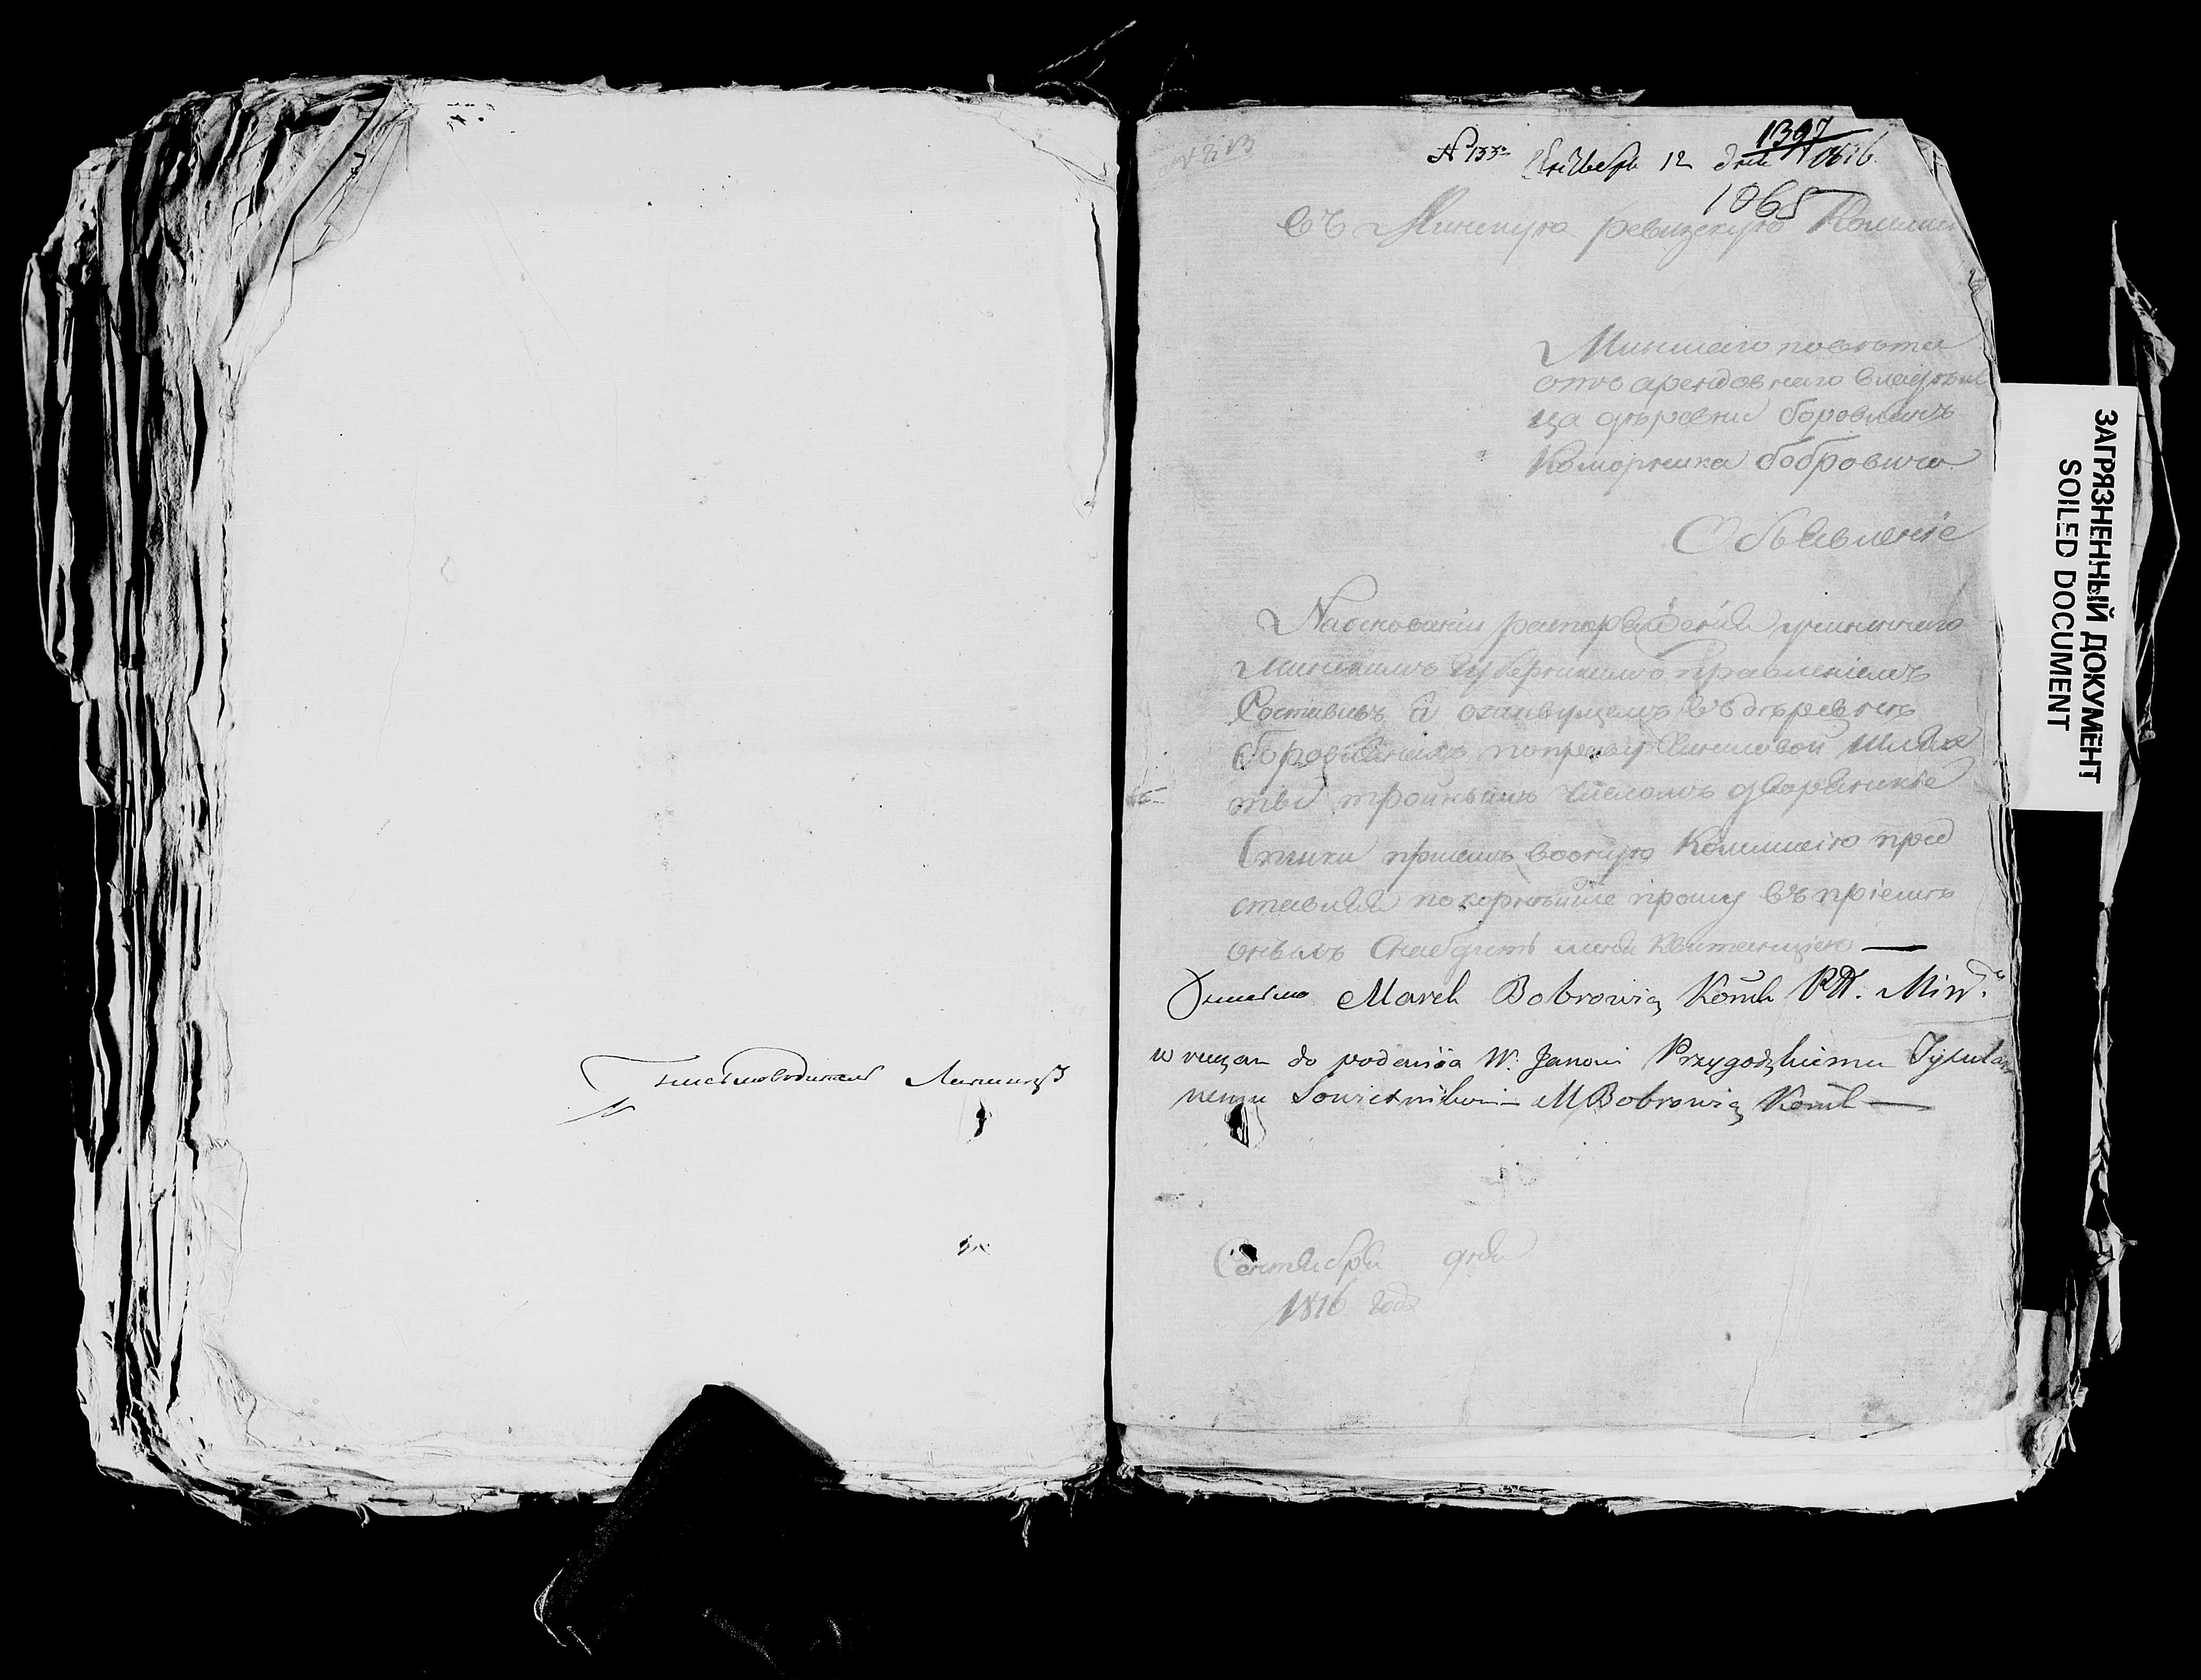 Письмоводитель
1397
№ 133 12 дня 1816
1065
Въ Минскую ревизскую Комиссі
Минскаго повѣта
отъ арендовнаго владѣл
ца дѣревни боровлянъ
Коморника бобровича
Объявленіе
Наосновании учиненнаго
Минскимъ Губернскимъ правленіемъ
Составивъ о въ дѣревнѣ
боровлянахъ Чиншовой шлях
ты тройнымъ числомъ дворянскіе
Списки при семъ вооную Комиссію пред
ставляя покорнѣйше прошу въ пріемѣ
оныхъ Снабдить меня квитанціею —
Marek Bobrowicz Komk P. Min.
wręczam do podania W. Janowi Przygodzkiemu Tytular
nemu Sowietnikowi — M Bobrowicz Komk —
Сентября дня
1816 года
ЗАГРЯЗНЕННЫЙ ДОКУМЕНТ
SOILED DOCUMENT